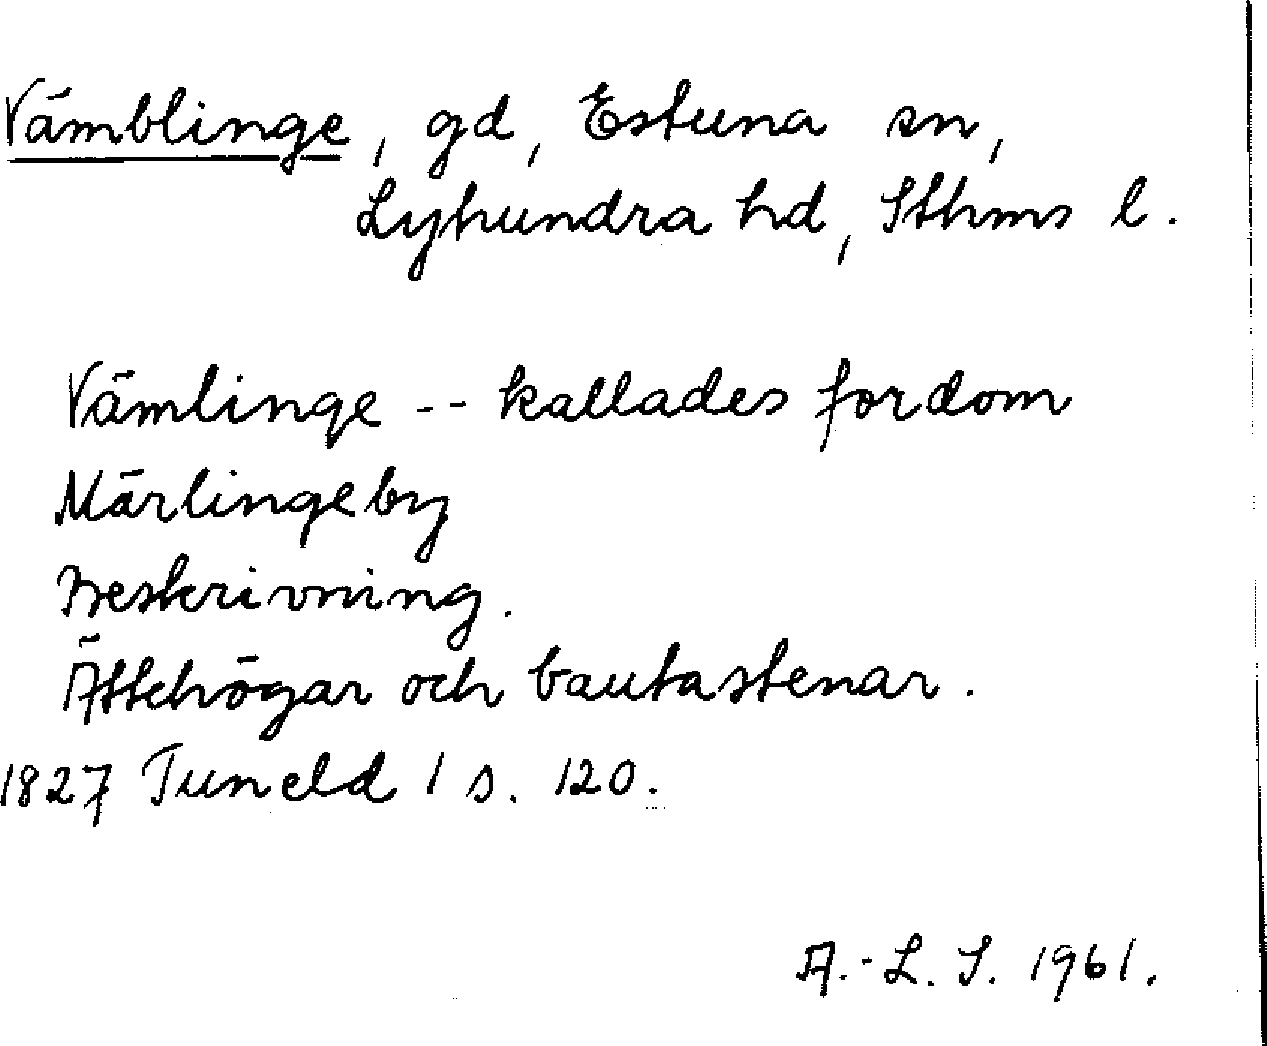 Vämblinge, gd, Estuna sn,
Lyhundra hd, Sthms l.
Vämlinge -- kallades fordom
Märlingeby
Beskrivning.
Ättehögar och bautastenar.
1827 Tuneld 1 s. 120.
A.-L. S. 1961.